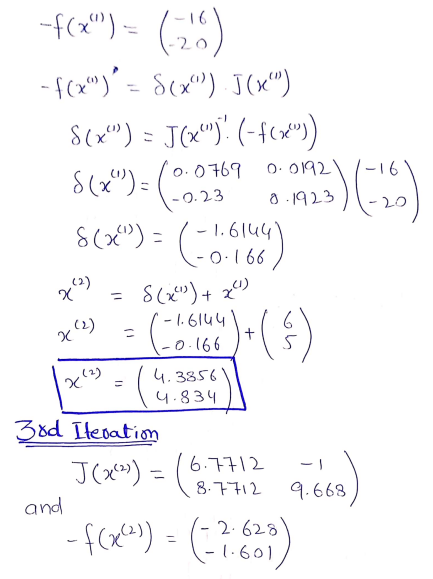 -f(x⁽¹⁾) = (-16 -20)
-f(x⁽¹⁾) = δ(x⁽¹⁾) . J(x⁽¹⁾)
δ(x⁽¹⁾) = J(x⁽¹⁾)⁻¹. (-f(x⁽¹⁾))
δ(x⁽¹⁾) = (0.0769 0.0192 -0.23 0.1923) (-16 -20)
δ(x⁽¹⁾) = (-1.6144 -0.166)
x⁽²⁾ = δ(x⁽¹⁾) + x⁽¹⁾
x⁽²⁾ = (-1.6144 -0.166) + (6 5)
x⁽²⁾ = (4.3856 4.834)
3rd Iteration
J(x⁽²⁾) = (6.7712 -1 8.7712 9.668)
and
-f(x⁽²⁾) = (-2.628 -1.601)